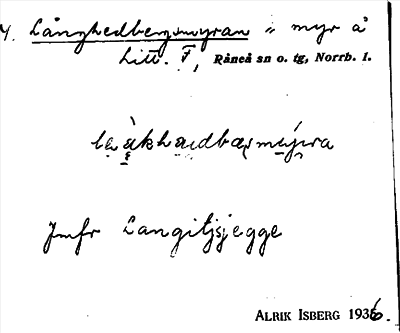 4. Långhedbergsmyran = myr å
Litt. F, Råneå sn o. tg, Norrb. l.
Jmfr Langitjsjegge
ALRIK ISBERG 1936.